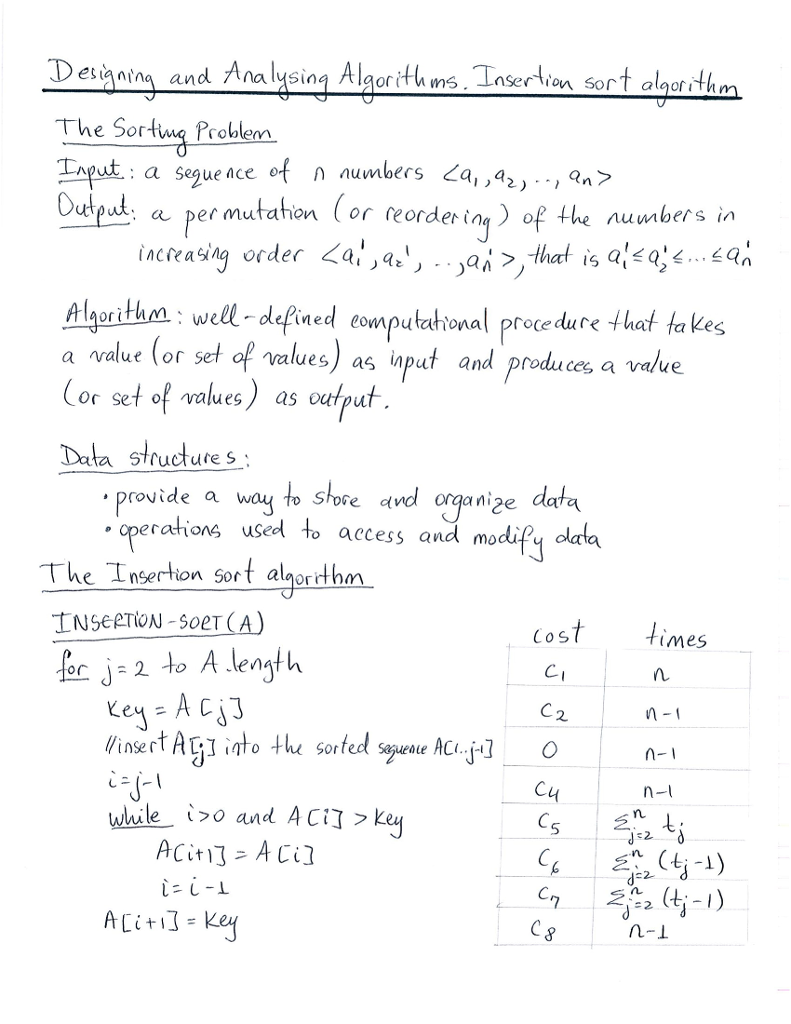 Designing and Analysing Algorithms. Insertion sort algorithm
The Sorting Problem
Input: a sequence of n numbers <a₁, a₂, .., aₙ>
Output: a permutation (or reordering) of the numbers in
increasing order <a₁', a₂', .., aₙ'>, that is a₁'≤a₂'≤...≤aₙ'
Algorithm: well-defined computational procedure that takes
a value (or set of values) as input and produces a value
(or set of values) as output.
Data structures:
• provide a way to store and organize data
• operations used to access and modify data
The Insertion sort algorithm
INSERTION-SORT(A) cost times
for j=2 to A.length C₁ n
Key = A[j] C₂ n-1
//insert A[j] into the sorted sequence A[1..j-1] 0 n-1
i=j-1 C₄ n-1
while i>0 and A[i] > Key C₅ Σⁿⱼ₌₂ tⱼ
A[i+1] = A[i] C₆ Σⁿⱼ₌₂ (tⱼ-1)
i=i-1 C₇ Σⁿⱼ₌₂ (tⱼ-1)
A[i+1] = Key C₈ n-1